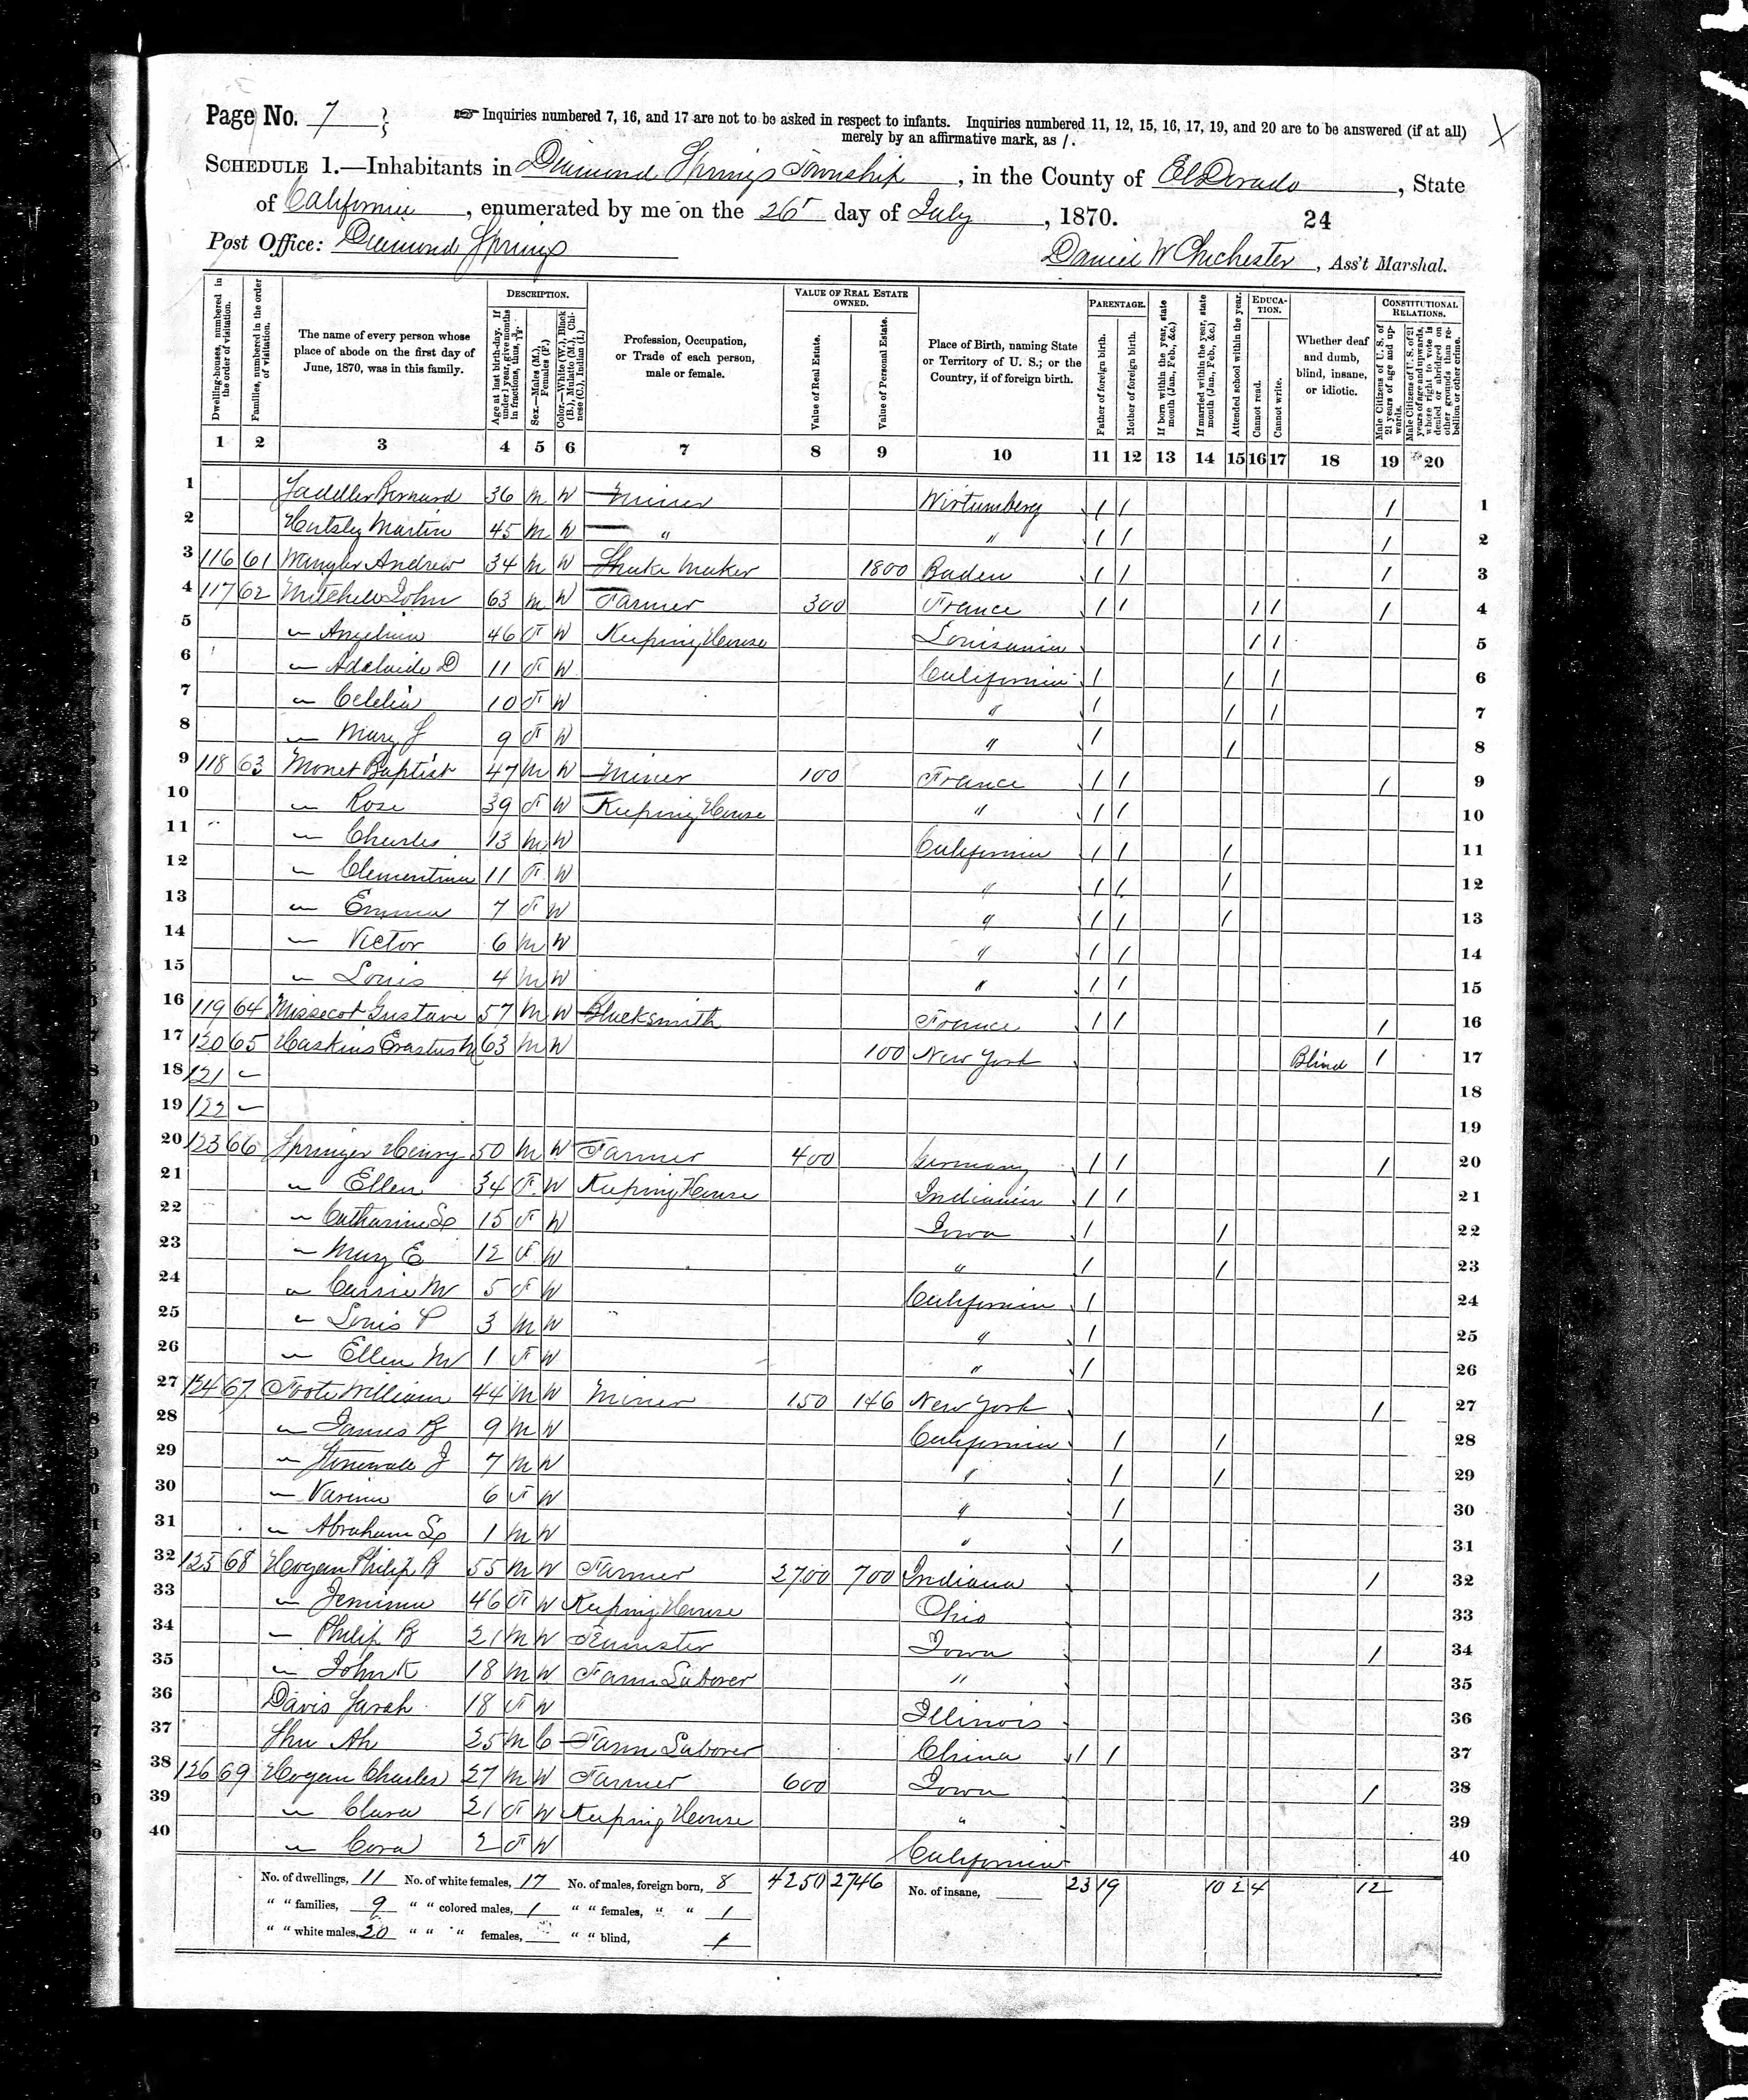 Page No. 7
☞ Inquiries numbered 7, 16, and 17 are not to be asked in respect to infants. Inquiries numbered 11, 12, 15, 16, 17, 19, and 20 are to be answered (if at all)
merely by an affirmative mark, as /.
SCHEDULE 1.—Inhabitants in Diamond Springs Township, in the County of El Dorado, State
of California, enumerated by me on the 26 day of July, 1870. 24
Post Office: Diamond Springs
Daniel W Chichester, Ass't Marshal.
Dwelling-houses, numbered in the order of visitation.
Families, numbered in the order of visitation.
The name of every person whose place of abode on the first day of June, 1870, was in this family.
DESCRIPTION.
Age at last birth-day. If under 1 year, give months in fractions, thus, 3/12.
Sex.—Males (M.), Females (F.)
Color.—White (W.), Black (B.), Mulatto (M.), Chinese (C.), Indian (I.)
Profession, Occupation, or Trade of each person, male or female.
VALUE OF REAL ESTATE OWNED.
Value of Real Estate.
Value of Personal Estate.
Place of Birth, naming State or Territory of U. S.; or the Country, if of foreign birth.
PARENTAGE.
Father of foreign birth.
Mother of foreign birth.
If born within the year, state month (Jan., Feb., &c.)
If married within the year, state month (Jan., Feb., &c.)
Attended school within the year.
EDUCATION.
Cannot read.
Cannot write.
Whether deaf and dumb, blind, insane, or idiotic.
CONSTITUTIONAL RELATIONS.
Male Citizens of U. S. of 21 years of age and upwards.
Male Citizens of U. S. of 21 years of age and upwards, where right to vote is denied or abridged on other grounds than rebellion or other crime.
1 2 3 4 5 6 7 8 9 10 11 12 13 14 15 16 17 18 19 20
1 Bernard 36 M W Miner Wirtumberg / / / 1
2 Martin 45 M W " " / / / 2
3 116 61 Wangler Andrew 34 M W Shake Maker 1800 Baden / / / 3
4 117 62 Mitchell John 63 M W Farmer 300 France / / / / / 4
5 — Angelina 46 F W Keeping House Louisania / / 5
6 — Adelaide D 11 F W California / / / 6
7 — Celelia 10 F W " / / / 7
8 — Mary J 9 F W " / / 8
9 118 63 Monet Baptist 47 M W Miner 100 France / / / 9
10 — Rose 39 F W Keeping House " / / 10
11 — Charles 13 M W California / / / 11
12 — Clementina 11 F W " / / / 12
13 — Emma 7 F W " / / / 13
14 — Victor 6 M W " / / 14
15 — Louis 4 M W " / / 15
16 119 64 Missecot Gustave 57 M W Blacksmith France / / / 16
17 120 65 Haskins Erastus 63 M W 100 New York Blind / 17
18 121 — 18
19 122 — 19
20 123 66 Springer Henry 50 M W Farmer 400 Germany / / / 20
21 — Ellen 34 F W Keeping House Indiania / / 21
22 — Catharine L 15 F W Iowa / / 22
23 — Mary E 12 F W " / / 23
24 — Carrie M 5 F W California / 24
25 — Louis P 3 M W " / 25
26 — Ellen M 1 F W " / 26
27 124 67 Foote William 44 M W Miner 150 146 New York / 27
28 — James B 9 M W California / / 28
29 — Stonewall J 7 M W " / / 29
30 — Varina 6 F W " / 30
31 — Abraham L 1 M W " / 31
32 125 68 Hogan Philip B 55 M W Farmer 2700 700 Indiana / 32
33 — Jemima 46 F W Keeping House Ohio 33
34 — Philip B 21 M W Teamster Iowa / 34
35 — John K 18 M W Farm Laborer " 35
36 Davis Sarah 18 F W Illinois 36
37 Shu Ah 25 M C Farm Laborer China / / 37
38 126 69 Hogan Charles 27 M W Farmer 600 Iowa / 38
39 — Clara 21 F W Keeping House " 39
40 — Cora 2 F W California 40
No. of dwellings, 11 No. of white females, 17 No. of males, foreign born, 8 4250 2746 No. of insane, 23 19 10 2 4 12
" " families, 9 " " colored males, 1 " " females, " " 1
" " white males, 20 " " " females, " " blind, 1